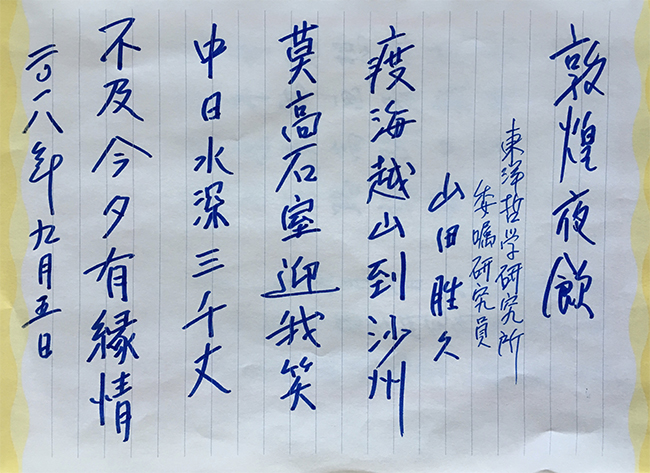 敦煌夜飲
東洋哲学研究所
委嘱研究員
山田勝久
度海越山到沙州
莫高石室迎我笑
中日水深三千丈
不及今夕有縁情
二〇一八年九月五日